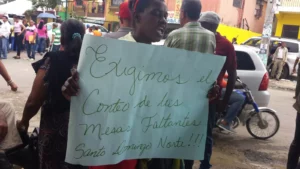 Exigimos el
Conteo de las
Mesas Faltantes
Santo d mingo Norte!!!